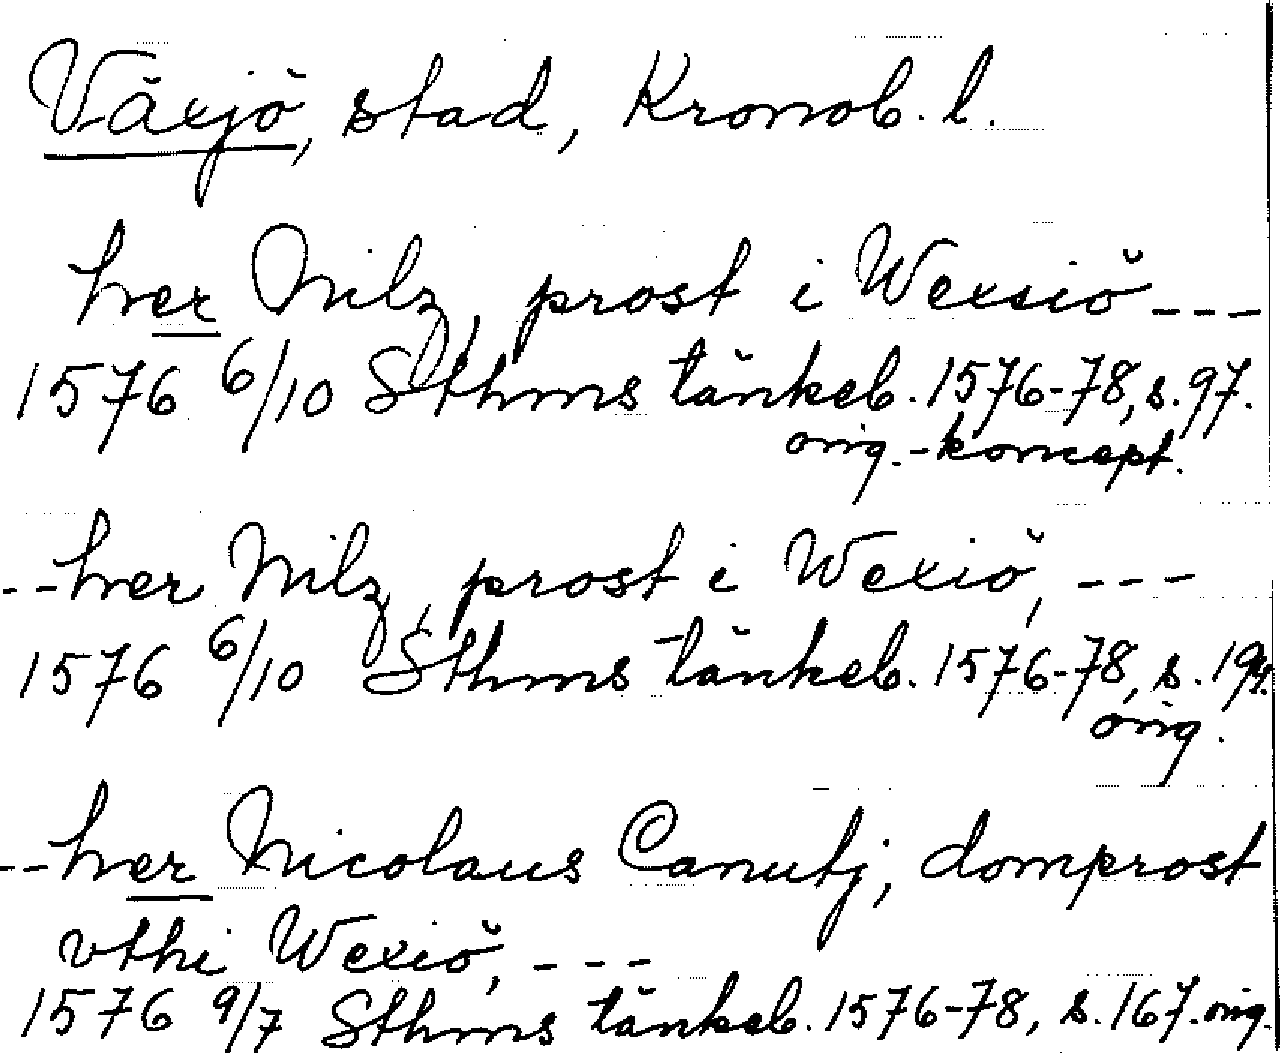 Växjö, stad, Kronob. l.
her Nilz, prost i Wexsiö ---
1576 6/10 Sthms tänkeb. 1576-78, s. 97.
orig.-koncept.
--her Nilz, prost i Wexiö, ---
1576 6/10 Sthms tänkeb. 1576-78, s. 194.
orig.
--her Nicolaus Canutj, domprost
vthi Wexiö, ---
1576 9/7 Sthms tänkeb. 1576-78, s. 167. orig.